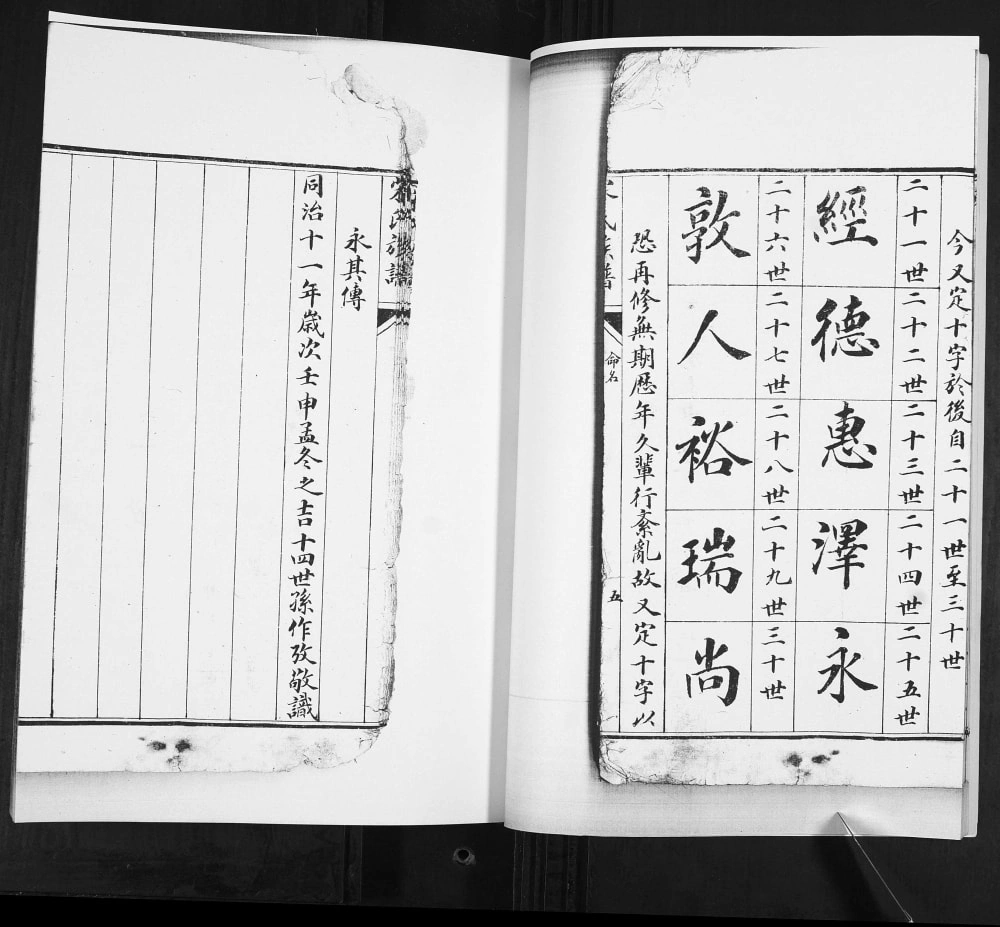 今又定十字於後自二十一世至三十世
二十一世 二十二世 二十三世 二十四世 二十五世
經 德 惠 澤 永
二十六世 二十七世 二十八世 二十九世 三十世
敦 人 裕 瑞 尚
恐再修無期歷年久輩行紊亂故又定十字以
氏族譜
命名
五
氏族譜
永其傳
同治十一年歲次壬申孟冬之吉十四世孫作孜敬識